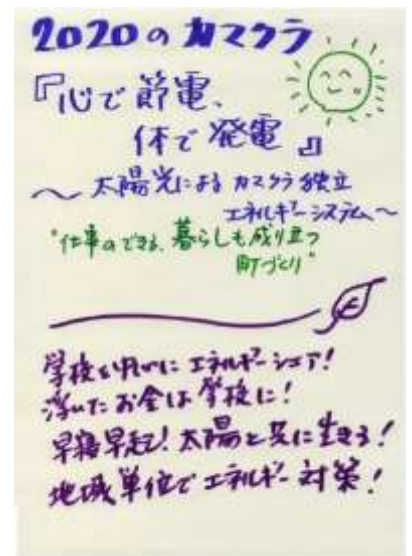 2020のカマクラ
『心で節電、
体で発電』
～太陽光によるカマクラ独立
エネルギーシステム～
"仕事のできる、暮らしも成り立つ
町づくり"
学校 にエネルギーシェア!
浮いたお金は学校に!
早寝早起!太陽と共に生きる!
地域単位でエネルギー対策!